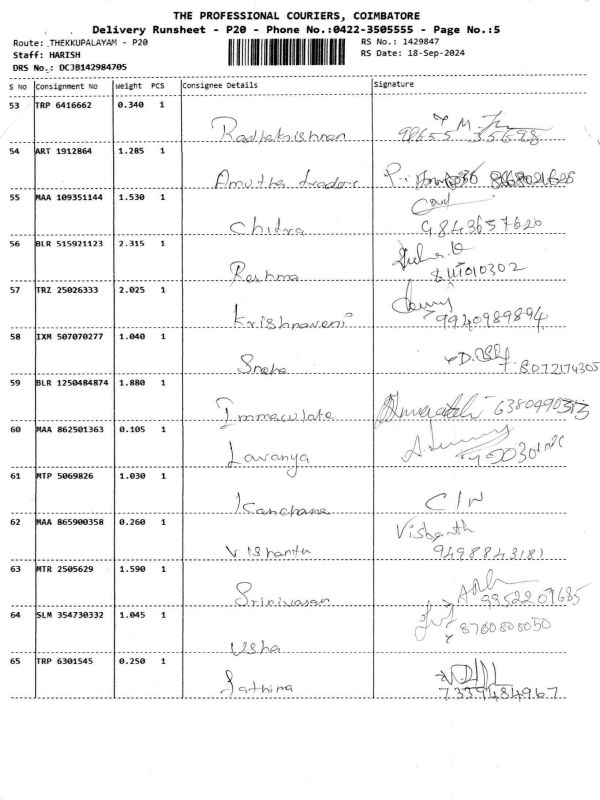 THE PROFESSIONAL COURIERS, COIMBATORE
Delivery Runsheet - P20 - Phone No.:0422-3505555 - Page No.:5
Route: .THEKKUPALAYAM - P20
RS No.: 1429847
Staff: HARISH
RS Date: 18-Sep-2024
DRS No.: DCJB142984705
S No Consignment No Weight PCS Consignee Details Signature
53 TRP 6416662 0.340 1
Radhakrishnan 98655 35698
54 ART 1912864 1.285 1
Amutha 8668021626
55 MAA 109351144 1.530 1
Chitra 9843657620
56 BLR 515921123 2.315 1
Reshma
57 TRZ 25026333 2.025 1
Krishnaveni 9940989894
58 IXM 507070277 1.040 1
Sneha 8072174305
59 BLR 1250484874 1.880 1
Immaculate
60 MAA 862501363 0.105 1
Lavanya
61 MTP 5069826 1.030 1
Kanchana
62 MAA 865900358 0.260 1
Vishanth
Vishanth 9498843181
63 MTR 2505629 1.590 1
Srinivasan 9952207685
64 SLM 354730332 1.045 1
Usha 8760808050
65 TRP 6301545 0.250 1
Fathima 7339484967